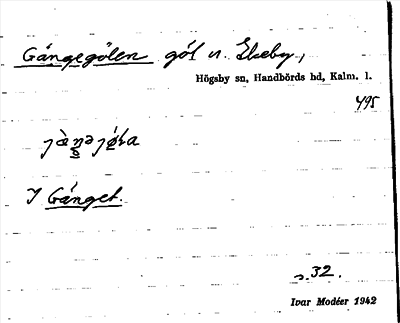 Gångegölen göl n. Ekeby,
Högsby sn, Handbörds hd, Kalm. l.
495
I Gånget.
s. 32.
Ivar Modéer 1942